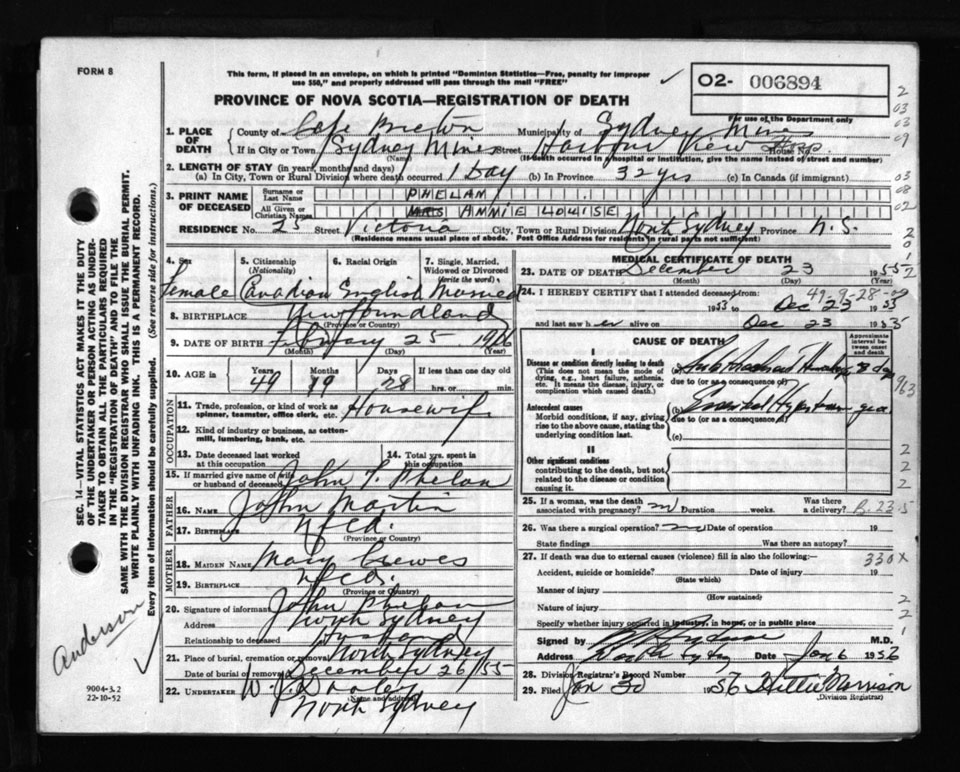 FORM 8
This form, if placed in an envelope, on which is printed "Dominion Statistics—Free, penalty for improper
use $50," and properly addressed will pass through the mail "FREE"
02- 006894
For use of the Department only
PROVINCE OF NOVA SCOTIA—REGISTRATION OF DEATH
1. PLACE OF DEATH
County of Cape Breton Municipality of Sydney Mines
If in City or Town Sydney Mines Street Harbour View Hosp. House No.
(Name) (If death occurred in a hospital or institution, give the name instead of street and number)
2. LENGTH OF STAY (in years, months and days)
(a) In City, Town or Rural Division where death occurred 1 Day (b) In Province 32 yrs (c) In Canada (if immigrant)
3. PRINT NAME OF DECEASED
Surname or Last Name PHELAN
All Given or Christian Names MRS ANNIE LOUISE
RESIDENCE No. 25 Street Victoria City, Town or Rural Division North Sydney Province N.S.
(Residence means usual place of abode. Post Office Address for residents in rural parts not sufficient)
4. Sex Female
5. Citizenship (Nationality) Canadian
6. Racial Origin English
7. Single, Married, Widowed or Divorced (Write the word) Married
8. BIRTHPLACE Newfoundland
(Province or Country)
9. DATE OF BIRTH February 25
(Month) (Day) (Year)
10. AGE in Years 49 Months Days 28 If less than one day
hrs. or min.
OCCUPATION
11. Trade, profession, or kind of work as spinner, teamster, office clerk, etc. Housewife
12. Kind of industry or business, as cotton-mill, lumbering, bank, etc.
13. Date deceased last worked at this occupation
14. Total yrs. spent in this occupation
15. If married give name of wife or husband of deceased John T. Phelan
FATHER
16. NAME John Martin
17. BIRTHPLACE Nfld.
(Province or Country)
MOTHER
18. MAIDEN NAME Mary
19. BIRTHPLACE Nfld.
(Province or Country)
20. Signature of informant John Phelan
Address North Sydney
Relationship to deceased Husband
21. Place of burial, cremation or removal North Sydney
Date of burial or removal December 26/55
22. UNDERTAKER W.
(Name and address) North Sydney
MEDICAL CERTIFICATE OF DEATH
23. DATE OF DEATH December 23 1955
(Month) (Day) (Year)
24. I HEREBY CERTIFY that I attended deceased from:
1953 to Dec 23 1955
49-9-28
and last saw her alive on Dec 23 1955
CAUSE OF DEATH
Approximate interval between onset and death
I
Disease or condition directly leading to death
(This does not mean the mode of dying, e.g., heart failure, asthenia, etc. It means the disease, injury, or complication which caused death.)
(a)
due to (or as a consequence of)
Antecedent causes
Morbid conditions, if any, giving rise to the above cause, stating the underlying condition last.
(b) Essential
due to (or as a consequence of)
(c)
II
Other significant conditions
contributing to the death, but not related to the disease or condition causing it.
25. If a woman, was the death associated with pregnancy? Duration weeks. Was there a delivery?
26. Was there a surgical operation? Date of operation 19
State findings Was there an autopsy?
27. If death was due to external causes (violence) fill in also the following:—
330X
Accident, suicide or homicide? Date of injury 19
(State which)
Manner of injury
(How sustained)
Nature of injury
Specify whether injury occurred in industry, in home, or in public place
Signed by M.D.
Address North Sydney Date Jan 6 1956
28. Division Registrar's Record Number
29. Filed Jan 30 1956 Morrison
(Division Registrar)
SEC. 14—VITAL STATISTICS ACT MAKES IT THE DUTY
OF THE UNDERTAKER OR PERSON ACTING AS UNDER-
TAKER TO OBTAIN ALL THE PARTICULARS REQUIRED
IN THE "REGISTRATION OF DEATH" AND TO FILE THE
SAME WITH THE DIVISION REGISTRAR WHO SHALL ISSUE THE BURIAL PERMIT.
WRITE PLAINLY WITH UNFADING INK. THIS IS A PERMANENT RECORD.
Every item of information should be carefully supplied. (See reverse side for instructions.)
Anderson
9004-3.2
22-10-52